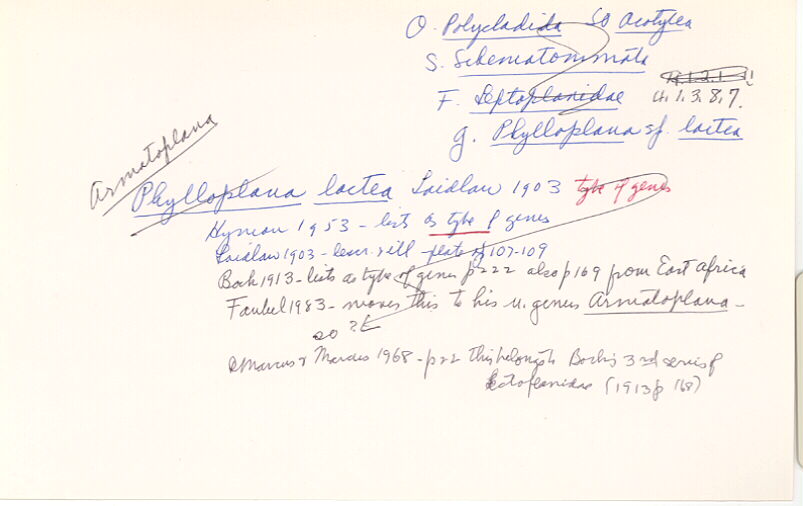 O. Polycladida SO Acotylea
S. Schematommata
F. Leptoplanidae 4.1.3.8.7.
g. Phylloplana sp. lactea
Armatoplana
Phylloplana lactea Laidlaw 1903 type of genus
Hyman 1953 - lists as type of genus
Laidlaw 1903 - descr. & ill - plate pg 107-109
Bock 1913 - lists as type of genus p222 also p169 from East Africa
Faubel 1983 - moves this to his n. genus Armatoplana -
so ?
Marcus & Marcus 1968 - p22 this belongs to Bock's 3rd series of
Leptoplanidae (1913 p 168)